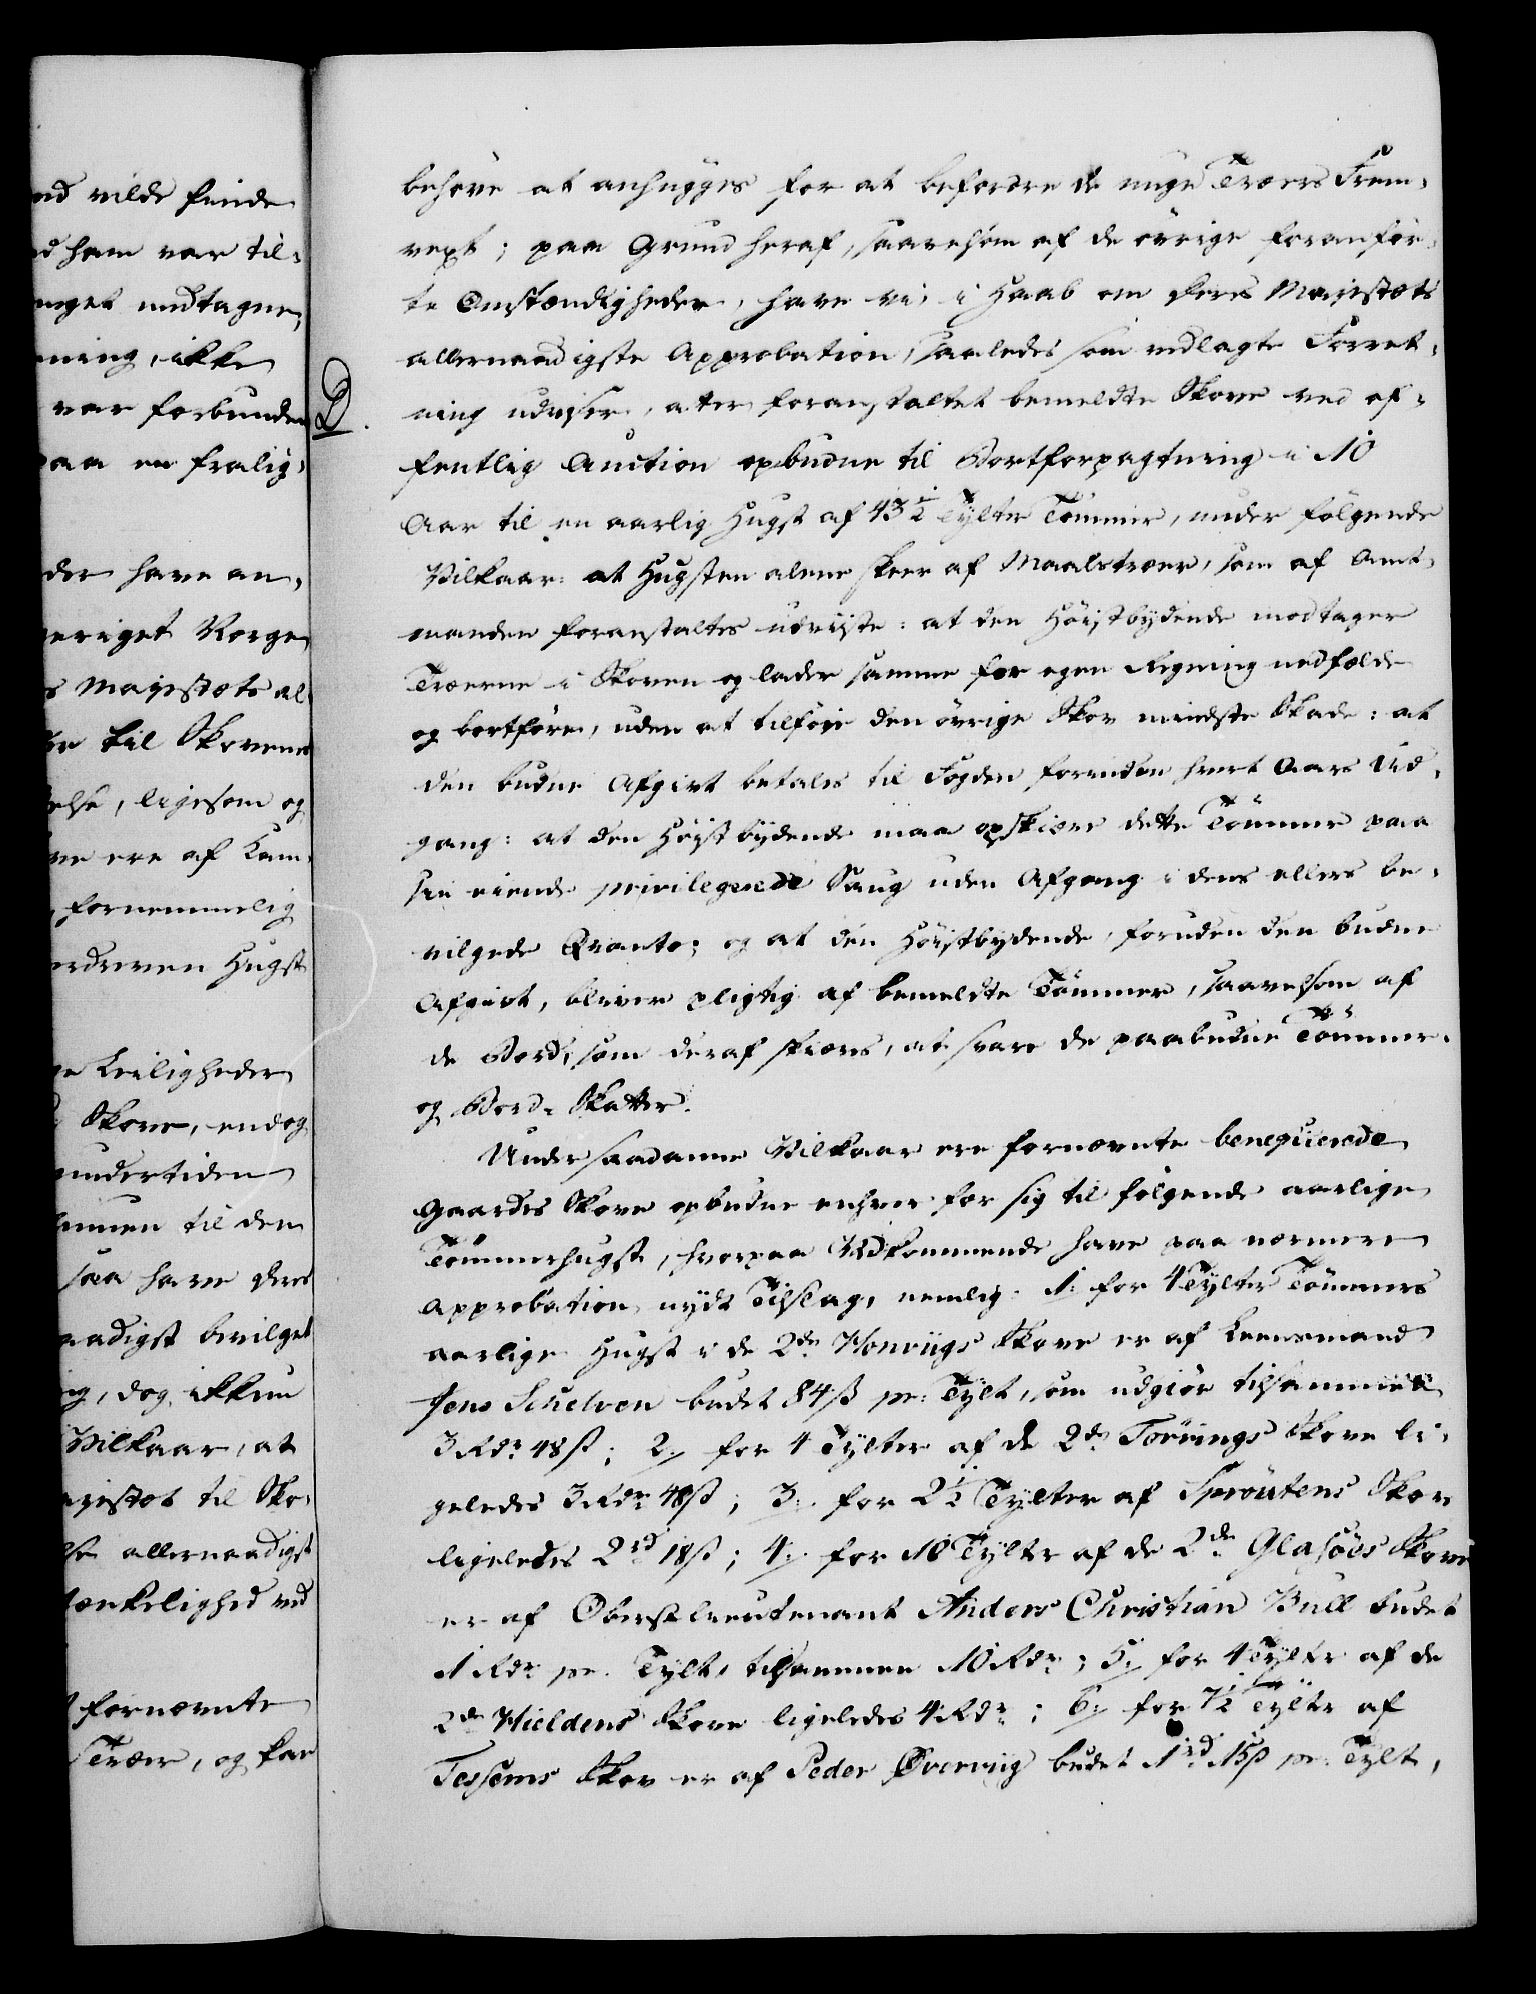 nd vilde finde
d ham var til-
nget undtagne,
ning, ikke
var forbunden
paa en fralig-
der have an-
eriget Norge,
s Majestæts al
er til Skovene
else, ligesom og
ve ere af Kam-
, fornemmelig
ordreven Hugst
ge Leiligheder
Skove, endog
undertiden
mmen til den
saa have Deres
aadigst bevilget
ig, dog ikkun
Vilkaar, at
ajestæt til Sko-
lse allernaadigst
tænkelighed ved
fornævnte
Træer, og kan
behøve at anhugges for at befordre de unge Træers Frem-
vext; paa Grund heraf, saavelsom af de øvrige foranfør-
te Omstændigheder, have vi, i Haab om Deres Majestæts
allernaadigste Approbation, saaledes som vedlagte Forret-
D.
ning udviser, atter foranstaltet bemeldte Skove ved of-
fentlig Auction opbudne til Bortforpagtning i 10
Aar til en aarlig Hugst af 43½ Tylter Tømmer, under følgende
Vilkaar: at Hugsten alene skeer af Maalstræer, som af Amt-
manden foranstaltes udviiste: at den Høistbydende modtager
Træerne i Skoven og lader samme for egen Regning nedfælde
og bortføre, uden at tilføie den øvrige Skov mindste Skade: at
den budne Afgivt betales til Fogden forinden hvert Aars Ud-
gang: at den Høistbydende maa opskiære dette Tømmer paa
sin eiende privilegerede Saug uden Afgang i dens ellers be-
vilgede Qvanto; og at den Høistbydende, foruden den budne
Afgivt, bliver pligtig af bemeldte Tømmer, saavelsom af
de Bord, som deraf skiæres, at svare de paabudne Tømmer-
og Bord-Skatter.
Under saadanne Vilkaar ere fornævnte beneficerede
Gaardes Skove opbudne enhver for sig til følgende aarlige
Tømmerhugst, hvorpaa Vedkommende have paa nærmere
Approbation nydt Tilslag, nemlig: 1. for 4 Tylter Tømmers
aarlige Hugst i de 2de Honviigs Skove er af Leensmand
Jens Schelven budet 84 ß pr. Tylt, som udgiør tilsammen
3 Rdr 48 ß; 2./ for 4 Tylter af de 2de Torvings Skove li-
geledes 3 Rdr 48 ß; 3./ for 2½ Tylter af Sprøutens Skov
ligeledes 2 rd 18 ß; 4./ for 10 Tylter af de 2de Glasøes Skove
er af Oberstlieutenant Anders Christian Bull budet
1 Rdr pr. Tylt, tilsammen 10 Rdr; 5./ for 4 Tylter af de
2de Hieldens Skove ligeledes 4 Rdr; 6./ for 7½ Tylter af
Tessems Skov er af Peder Øverviig budet 1 rd 15 ß pr. Tylt,